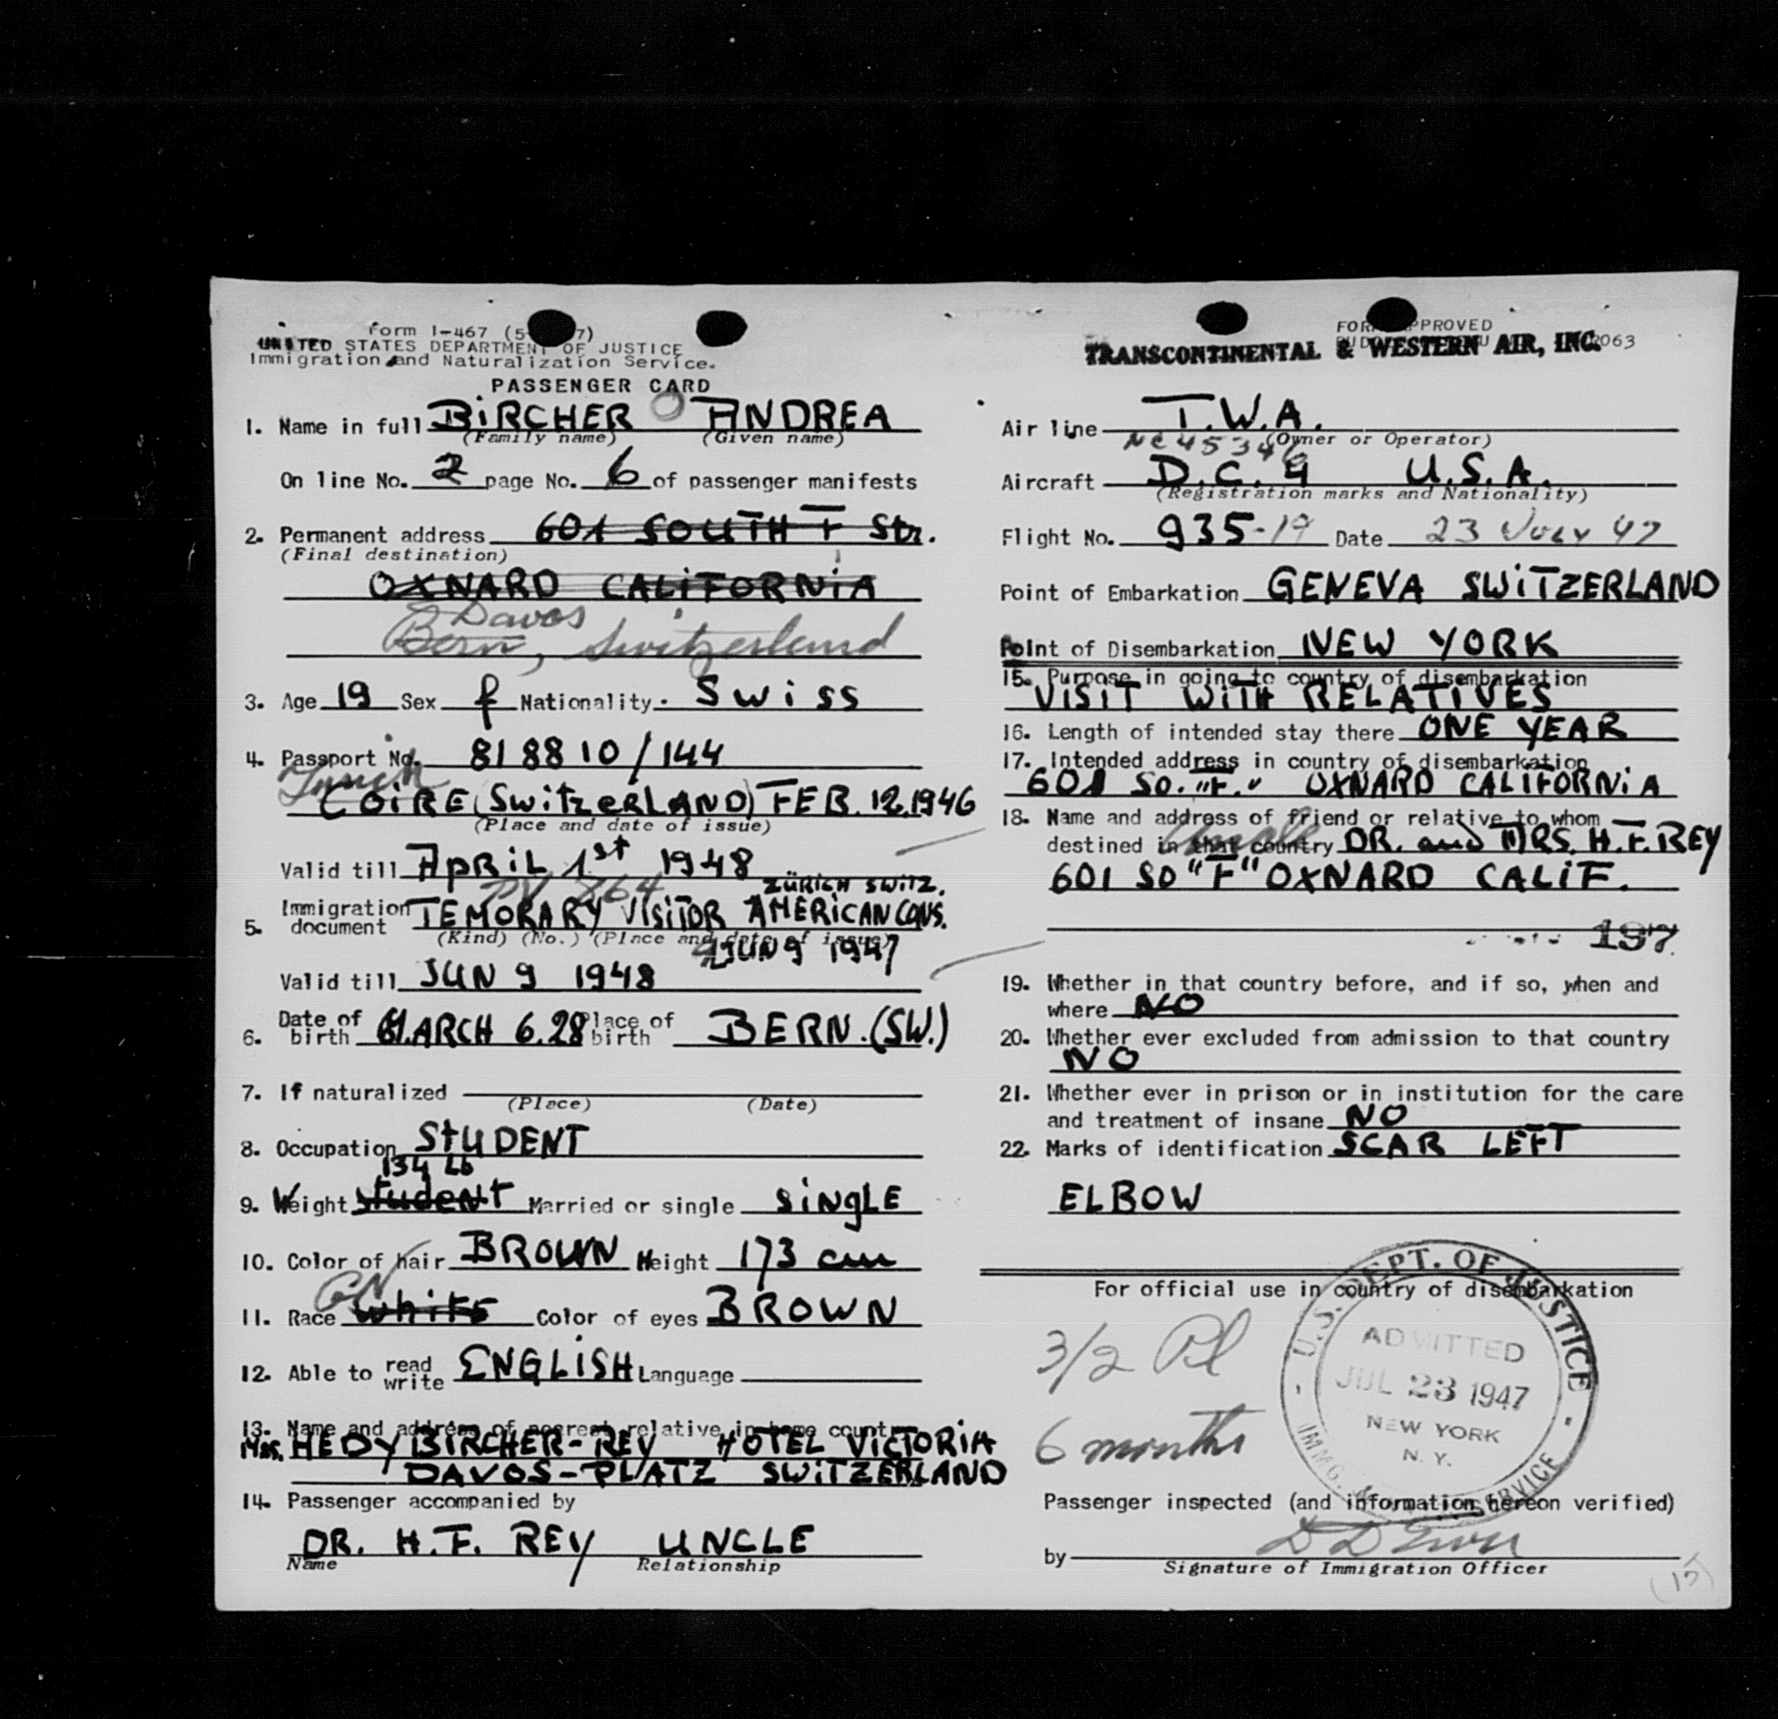 Form I-467 (5- 7)
UNITED STATES DEPARTMENT OF JUSTICE
Immigration and Naturalization Service.
PASSENGER CARD
1. Name in full BiRCHER ANDREA
(Family name) (Given name)
On line No. 2 page No. 6 of passenger manifests
2. Permanent address 601 SOUTH F Str.
(Final destination)
OXNARD CALiFORNiA
Davos
Bern, Switzerland
3. Age 19 Sex f Nationality. Swiss
4. Passport No. 818810/144
COiRE (SwitzeRLAND) FEB. 12.1946
(Place and date of issue)
Valid till ApRiL 1st 1948
PV 864 ZüRiCH SWiTZ.
5. Immigration document TEMORARY ViSiTOR AMERiCAN CONS.
(Kind) (No.) (Place and date of issue)
9 JUN 9 1947
Valid till JUN 9 1948
6. Date of birth MARCH 6.28 Place of birth BERN.(SW.)
7. If naturalized
(Place) (Date)
8. Occupation StUDENT
134 Lb
9. Weight studeNt Married or single SiNgLE
10. Color of hair BROWN Height 173 cm
11. Race white Color of eyes BROWN
12. Able to read write ENGLiSH Language
13. Name and address of nearest relative in home country
MRS. HEDY BiRCHER-REY HOTEL ViCTORiA
DAVOS-PLATZ SWiTZERLAND
14. Passenger accompanied by
DR. H.F. REY UNCLE
Name Relationship
FORM APPROVED
TRANSCONTINENTAL & WESTERN AIR, INC.
Air line T.W.A.
(Owner or Operator)
NC 45346
Aircraft D.C. 4 U.S.A.
(Registration marks and Nationality)
Flight No. 935-19 Date 23 July 47
Point of Embarkation GENEVA SWiTZERLAND
Point of Disembarkation NEW YORK
15. Purpose in going to country of disembarkation
ViSiT WiTH RELATiVES
16. Length of intended stay there ONE YEAR
17. Intended address in country of disembarkation
601 SO. "F." OXNARD CALiFORNiA
18. Name and address of friend or relative to whom
Uncle
destined in that country DR. and MRS. H.F. REY
601 SO "F" OXNARD CALiF.
197
19. Whether in that country before, and if so, when and
where NO
20. Whether ever excluded from admission to that country
NO
21. Whether ever in prison or in institution for the care
and treatment of insane NO
22. Marks of identification SCAR LEFT
ELBOW
For official use in country of disembarkation
3/2 Pl
6 months
U.S. DEPT. OF JUSTICE
ADMITTED
JUL 23 1947
NEW YORK
N.Y.
IMMG. SERVICE
Passenger inspected (and information hereon verified)
by
Signature of Immigration Officer